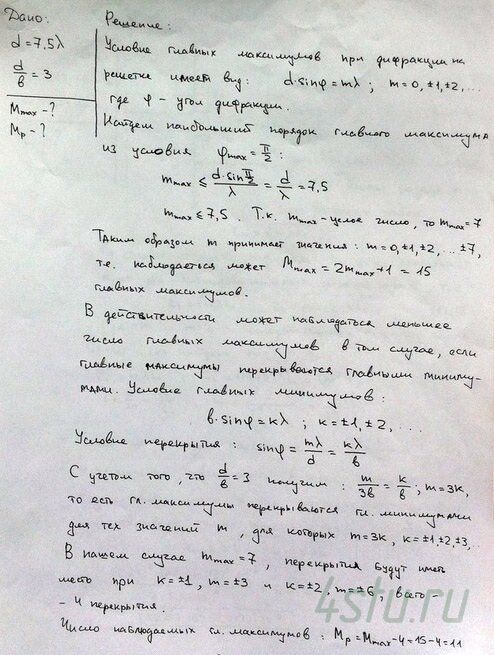 Дано:
d = 7,5λ
d/b = 3
Mmax - ?
Mр - ?
Решение:
Условие главных максимумов при дифракции на
решетке имеет вид: d·sinφ = mλ ; m = 0, ±1, ±2, ...
где φ - угол дифракции.
Найдем наибольший порядок главного максимума
из условия φmax = π/2 :
mmax ≤ d·sin π/2 / λ = d/λ = 7,5
mmax ≤ 7,5 . Т.к. mmax - целое число, то mmax = 7
Таким образом m принимает значения: m = 0, ±1, ±2, ... ±7,
т.е. наблюдаеться может Mmax = 2mmax + 1 = 15
главных максимумов.
В действительности может наблюдаться меньшее
число главных максимумов в том случае, если
главные максимумы перекрываются главными миниму-
мами. Условие главных минимумов:
b·sinφ = kλ ; k = ±1, ±2, ...
Условие перекрытия: sinφ = mλ/d = kλ/b
С учетом того, что d/b = 3 получим : m/3b = k/b ; m = 3k,
то есть гл. максимумы перекрываются гл. минимумами
для тех значений m, для которых m = 3k, k = ±1, ±2, ±3, ..
В нашем случае mmax = 7, перекрытия будут иметь
место при k = ±1, m = ±3 и k = ±2, m = ±6, всего -
- 4 перекрытия.
Число наблюдаемых гл. максимумов : Mр = Mmax - 4 = 15 - 4 = 11
4stu.ru